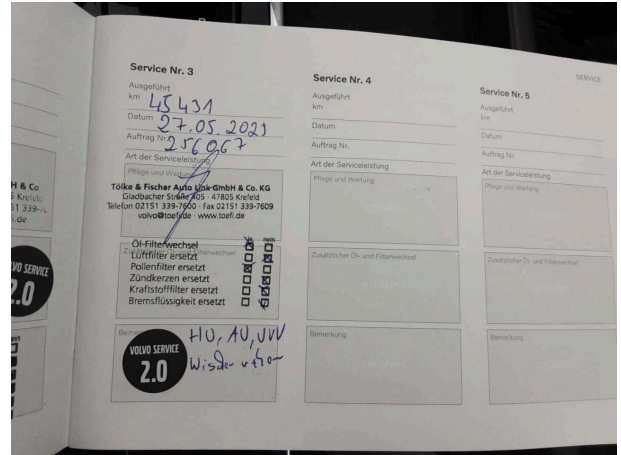 SERVICE
Service Nr. 3
Ausgeführt
km 45431
Datum 27.05.2021
Auftrag Nr. 256067
Art der Serviceleistung
Pflege und Wartung
Tölke & Fischer Auto Link GmbH & Co. KG
Gladbacher Straße 405 · 47805 Krefeld
Telefon 02151 339-7600 · Fax 02151 339-7609
volvo@toefi.de · www.toefi.de
ja nein
Zusätzlicher Öl- und Filterwechsel
Öl-Filterwechsel
Luftfilter ersetzt
Pollenfilter ersetzt
Zündkerzen ersetzt
Kraftstofffilter ersetzt
Bremsflüssigkeit ersetzt
HU, AU, UVV
VOLVO SERVICE
2.0
Service Nr. 4
Ausgeführt
km
Datum
Auftrag Nr.
Art der Serviceleistung
Pflege und Wartung
Zusätzlicher Öl- und Filterwechsel
Bemerkung
Service Nr. 5
Ausgeführt
km
Datum
Auftrag Nr.
Art der Serviceleistung
Pflege und Wartung
Zusätzlicher Öl- und Filterwechsel
Bemerkung
H & Co
Krefeld
51 339-
.de
VO SERVICE
2.0
ein